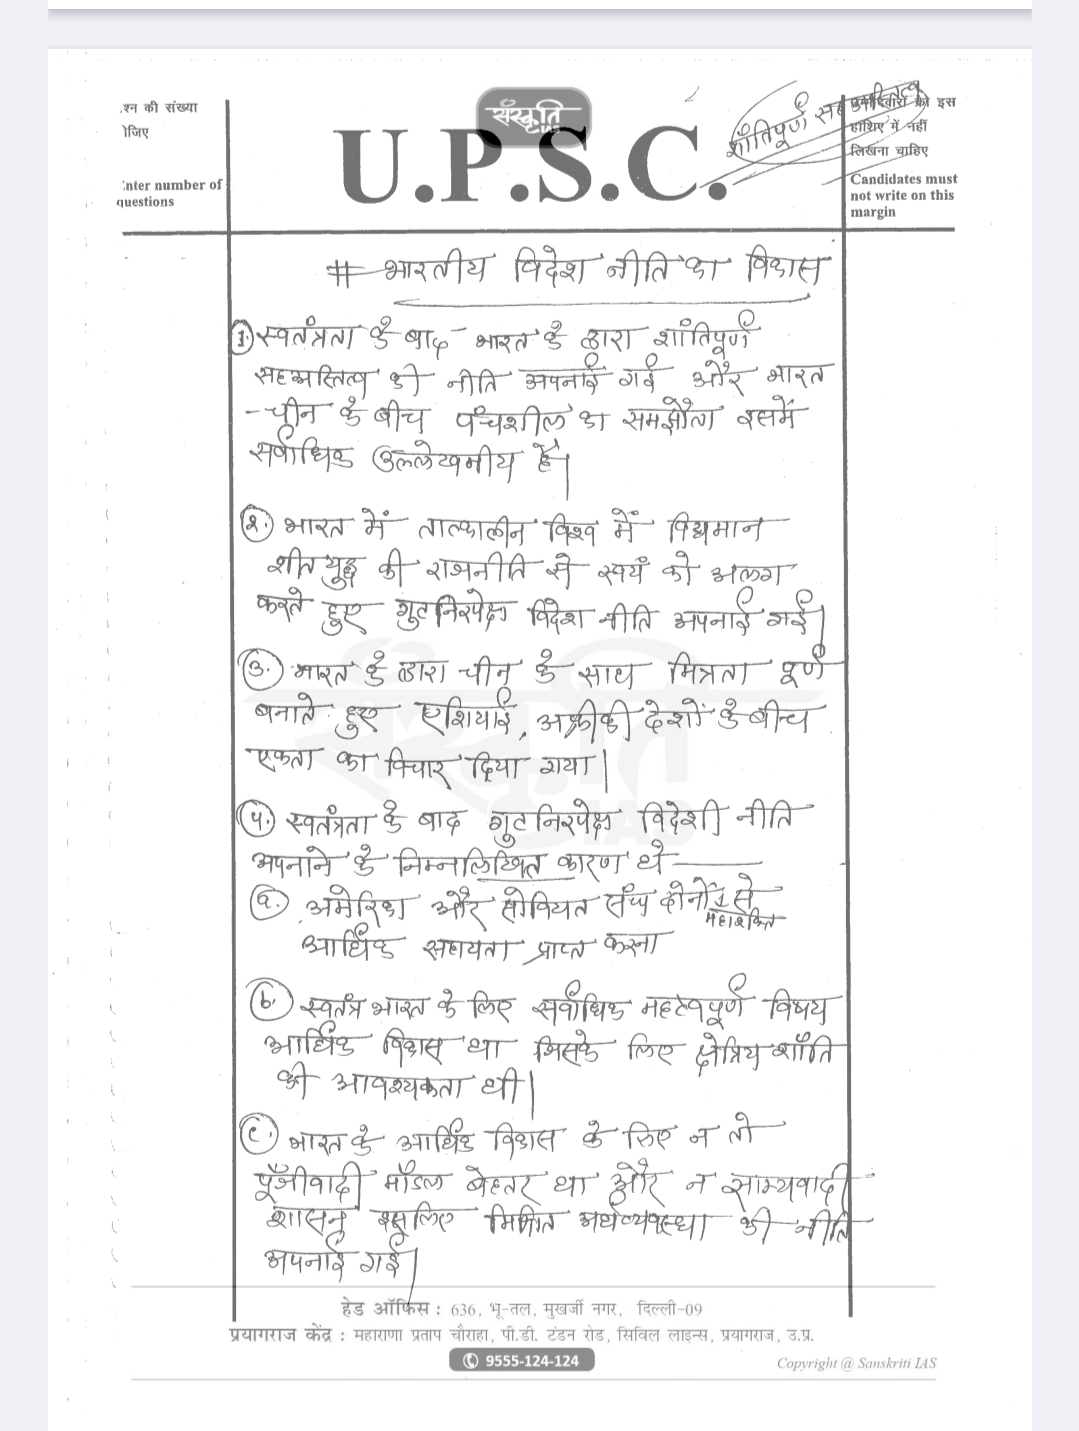 संस्कृति
IAS
शाँतिपूर्ण सहअस्तित्व
श्न की संख्या
ोजिए
nter number of
questions
U.P.S.C.
उम्मीदवारों को इस
हाशिए में नहीं
लिखना चाहिए
Candidates must
not write on this
margin
# भारतीय विदेश नीति का विकास
1. स्वतंत्रता के बाद भारत के द्वारा शांतिपूर्ण
सहअस्तित्व की नीति अपनाई गई और भारत
-चीन के बीच पंचशील का समझौता इसमें
सर्वाधिक उल्लेखनीय है।
२. भारत में तात्कालीन विश्व में विद्यमान
शीत युद्ध की राजनीति से स्वयं को अलग
करते हुए गुटनिरपेक्ष विदेश नीति अपनाई गई।
३. भारत के द्वारा चीन के साथ मित्रता पूर्ण
बनाते हुए एशियाई, अफ्रीकी देशों के बीच
एकता का विचार दिया गया।
४. स्वतंत्रता के बाद गुटनिरपेक्ष विदेशी नीति
अपनाने के निम्नलिखित कारण थे
a. अमेरिका और सोवियत संघ दोनों से
महाशक्ति
आर्थिक सहायता प्राप्त करना
b. स्वतंत्र भारत के लिए सर्वाधिक महत्वपूर्ण विषय
आर्थिक विकास था जिसके लिए क्षेत्रिय शाँति
की आवश्यकता थी।
c. भारत के आर्थिक विकास के लिए न तो
पूँजीवादी मॉडल बेहतर था और न साम्यवादी
शासन इसलिए मिश्रित अर्थव्यवस्था की नीति
अपनाई गई।
हेड ऑफिस : 636, भू-तल, मुखर्जी नगर, दिल्ली-09
प्रयागराज केंद्र : महाराणा प्रताप चौराहा, पी.डी. टंडन रोड, सिविल लाइन्स, प्रयागराज, उ.प्र.
9555-124-124
Copyright @ Sanskriti IAS